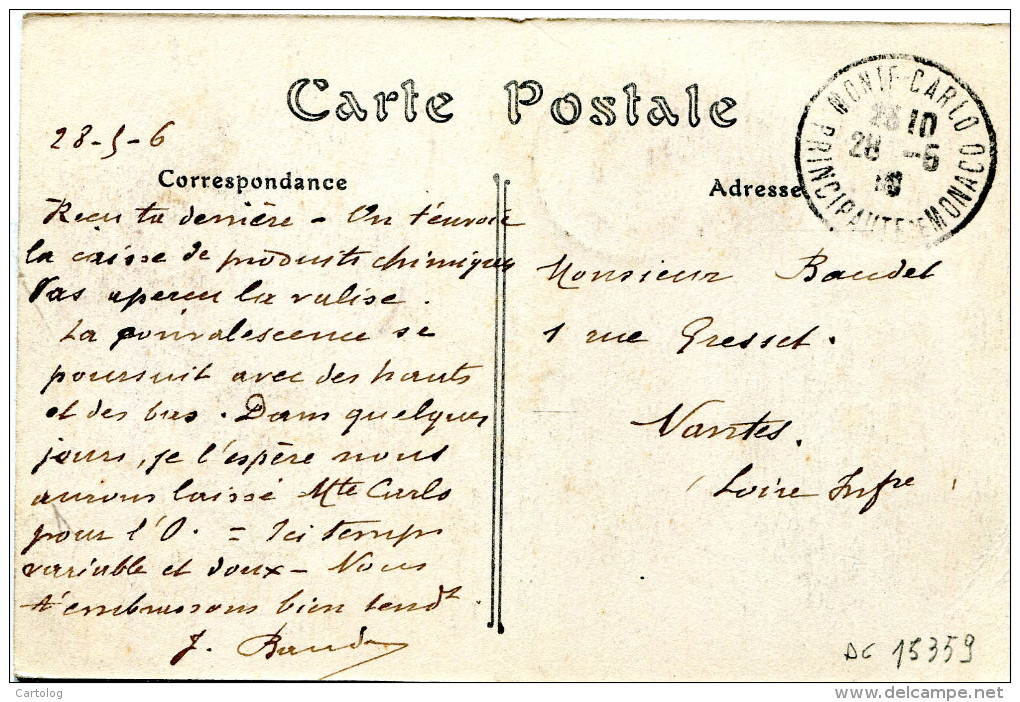 Carte Postale
28-5-6
MONTE-CARLO
PRINCIPAUTE DE MONACO
10
28 -5
Correspondance
Adresse
Reçu ta dernière - On t'envoie
la caisse de produits chimiques
Pas aperçu la valise.
La convalescence se
poursuit avec des hauts
et des bas. Dans quelques
jours, je l'espère nous
aurons laissé Mte Carlo
pour l'O. = Ici temps
variable et doux - Nous
t'embrassons bien tendt.
J.
Monsieur Baudet
1 rue Gresset.
Nantes.
Loire Infre
15359
Cartolog
delcampe.net